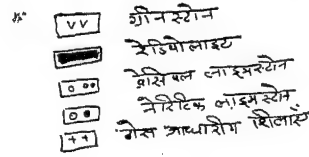 vv ग्रीन स्टोन
रेडियोलाइट
बेसियल लाइमस्टोन
नेरिटिक लाइमस्टोन
++ गैस आधारीय शिलाएं